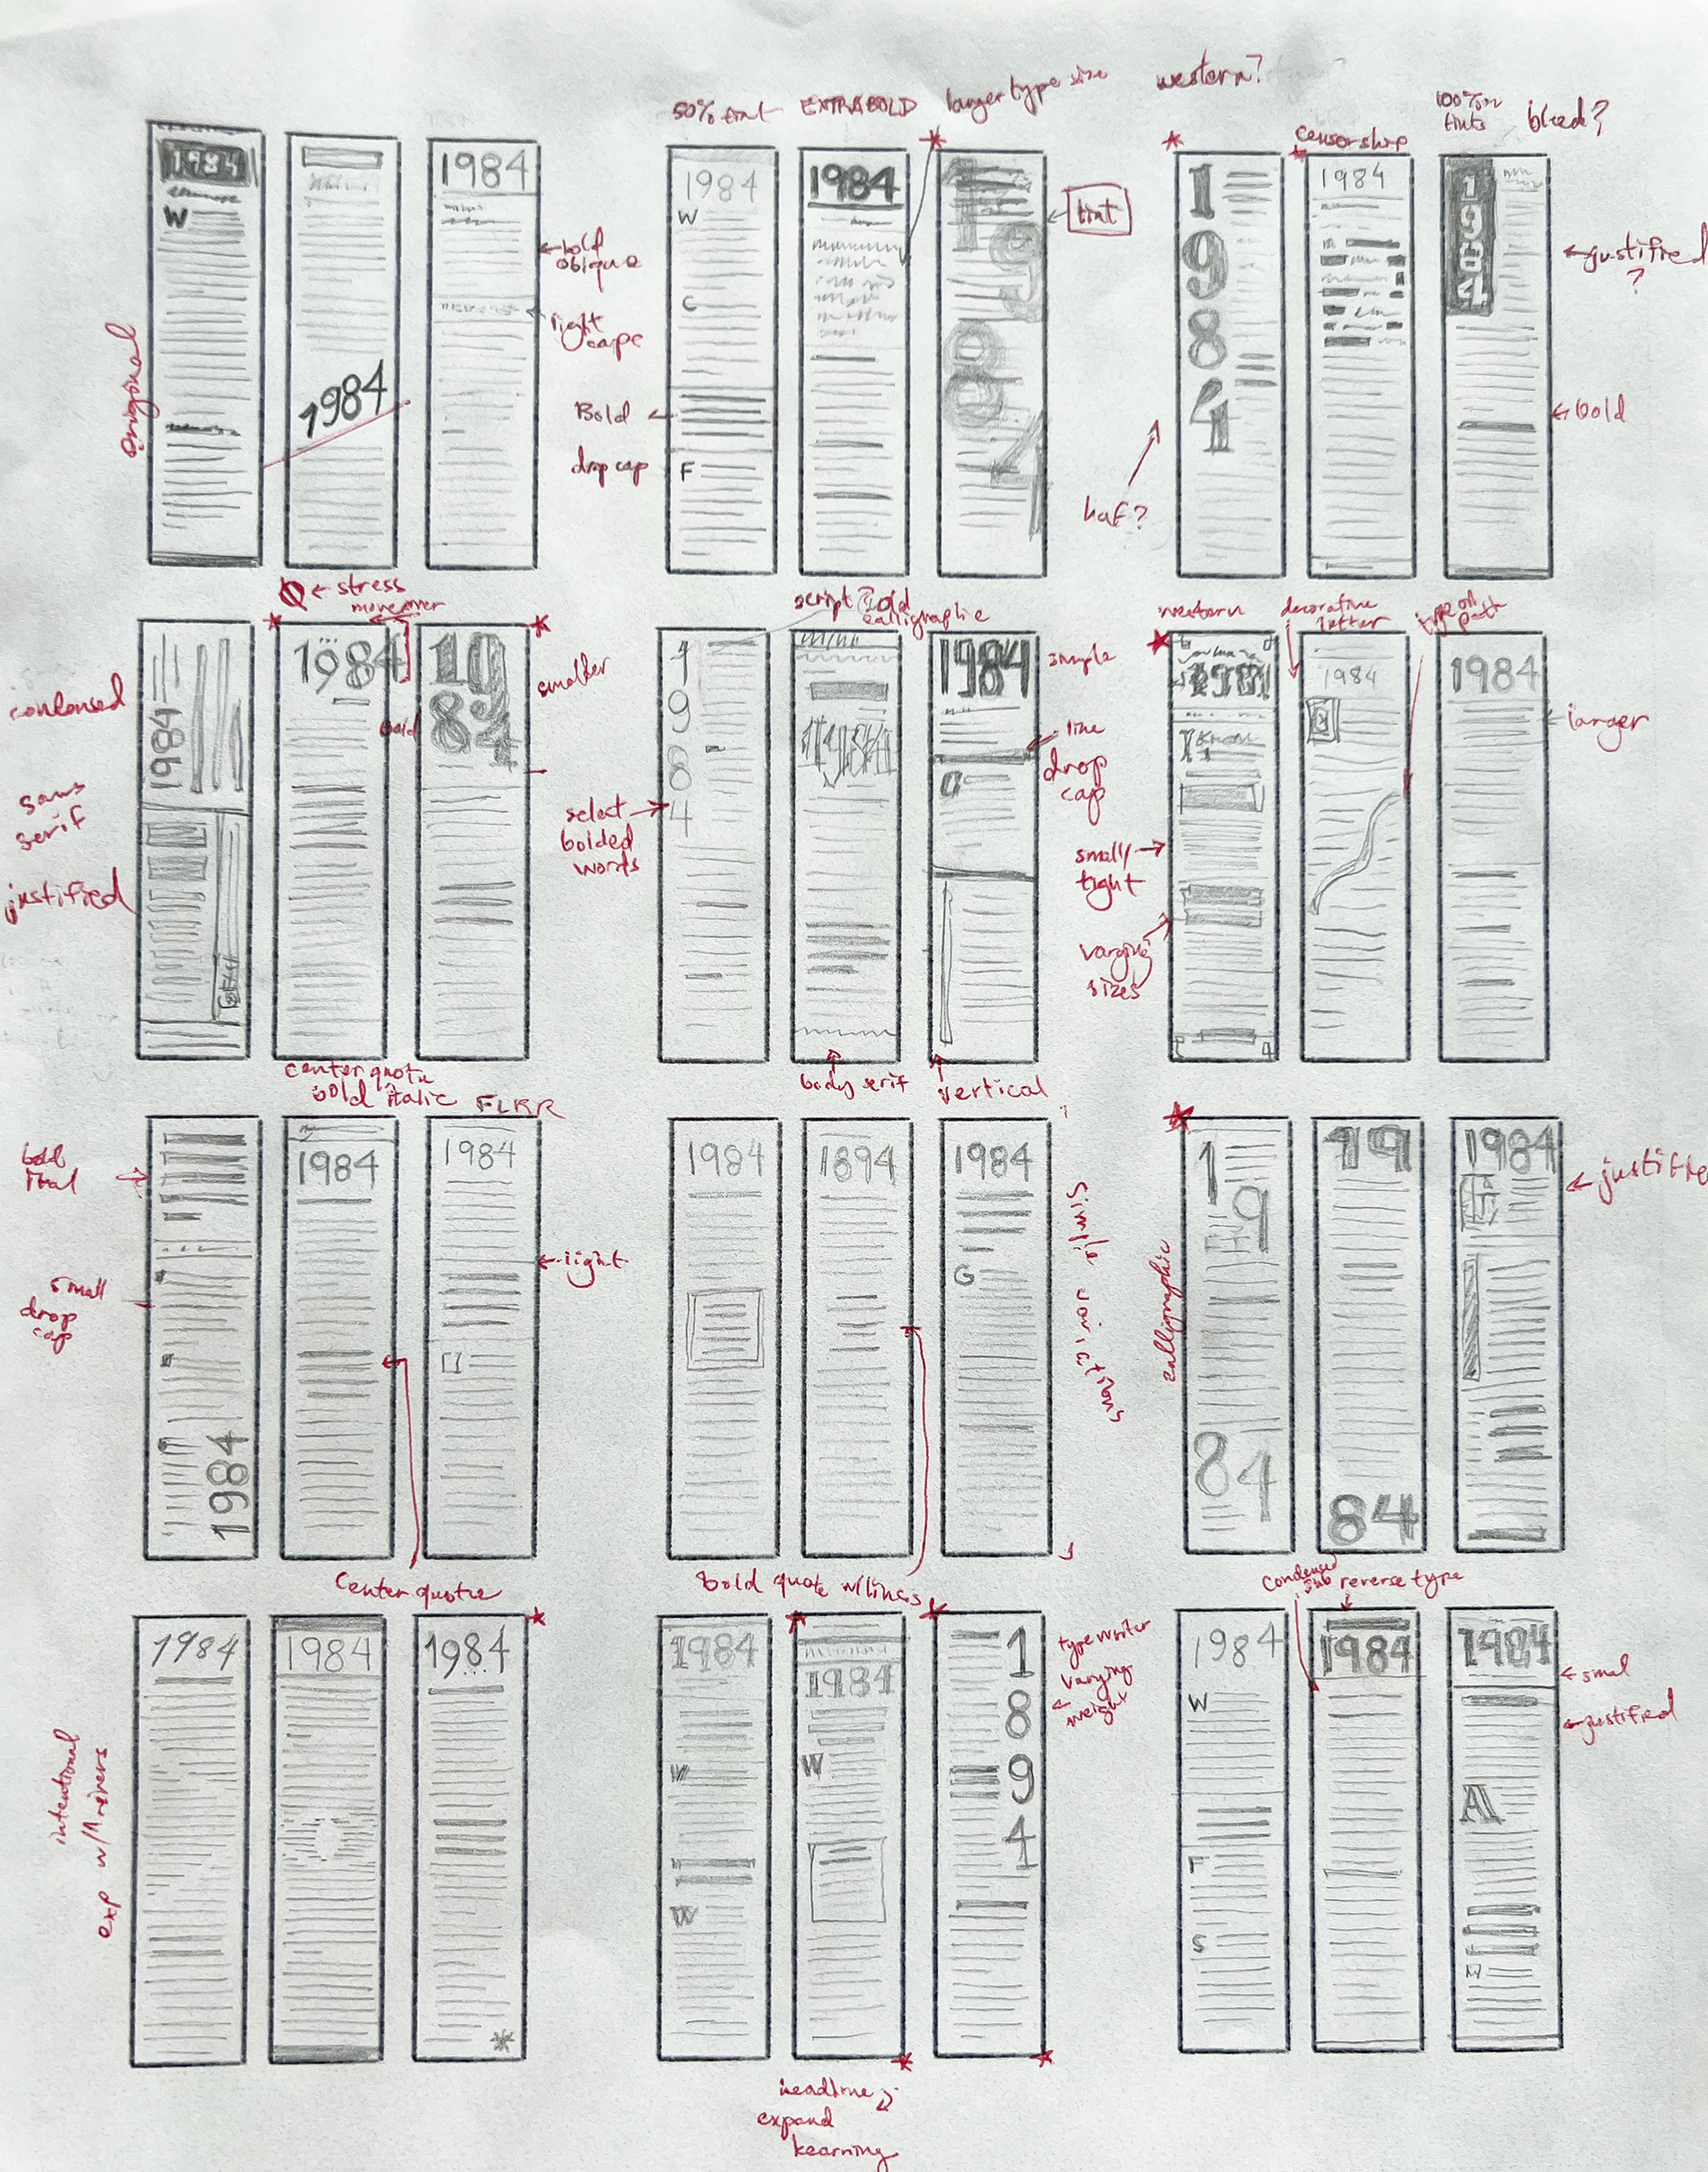 western?
50% tint
EXTRABOLD
larger type size
censorship
100%
tints
bleed?
1984
1984
1984
1984
1984
1984
1
9
8
4
1984
1
9
8
4
W
W
C
F
tint
bold
oblique
justified
?
original
right
Bold
drop cap
bold
stress
script
calligraphic
western
decorative
letter
type on
path
moveover
condensed
sans
serif
justified
1984
1984
19
84
bold
smaller
1
9
8
4
1984
1984
simple
line
drop
cap
select
bolded
words
1984
1984
1984
larger
small/
tight
varying
sizes
center quote
bold italic
FLRR
body serif
vertical
bold
small
drop
cap
1984
1984
1984
light
1984
1894
1984
G
Similar variations
calligraphic
1
9
84
19
84
1984
center quote
Bold quote w/lines
condensed
sub
reverse type
intentional
exp w/
1984
1984
1984
1984
W
W
1984
W
1
8
9
4
typewriter
varying
weight
1984
W
F
S
1984
1984
A
justified
headline
expand
kearning